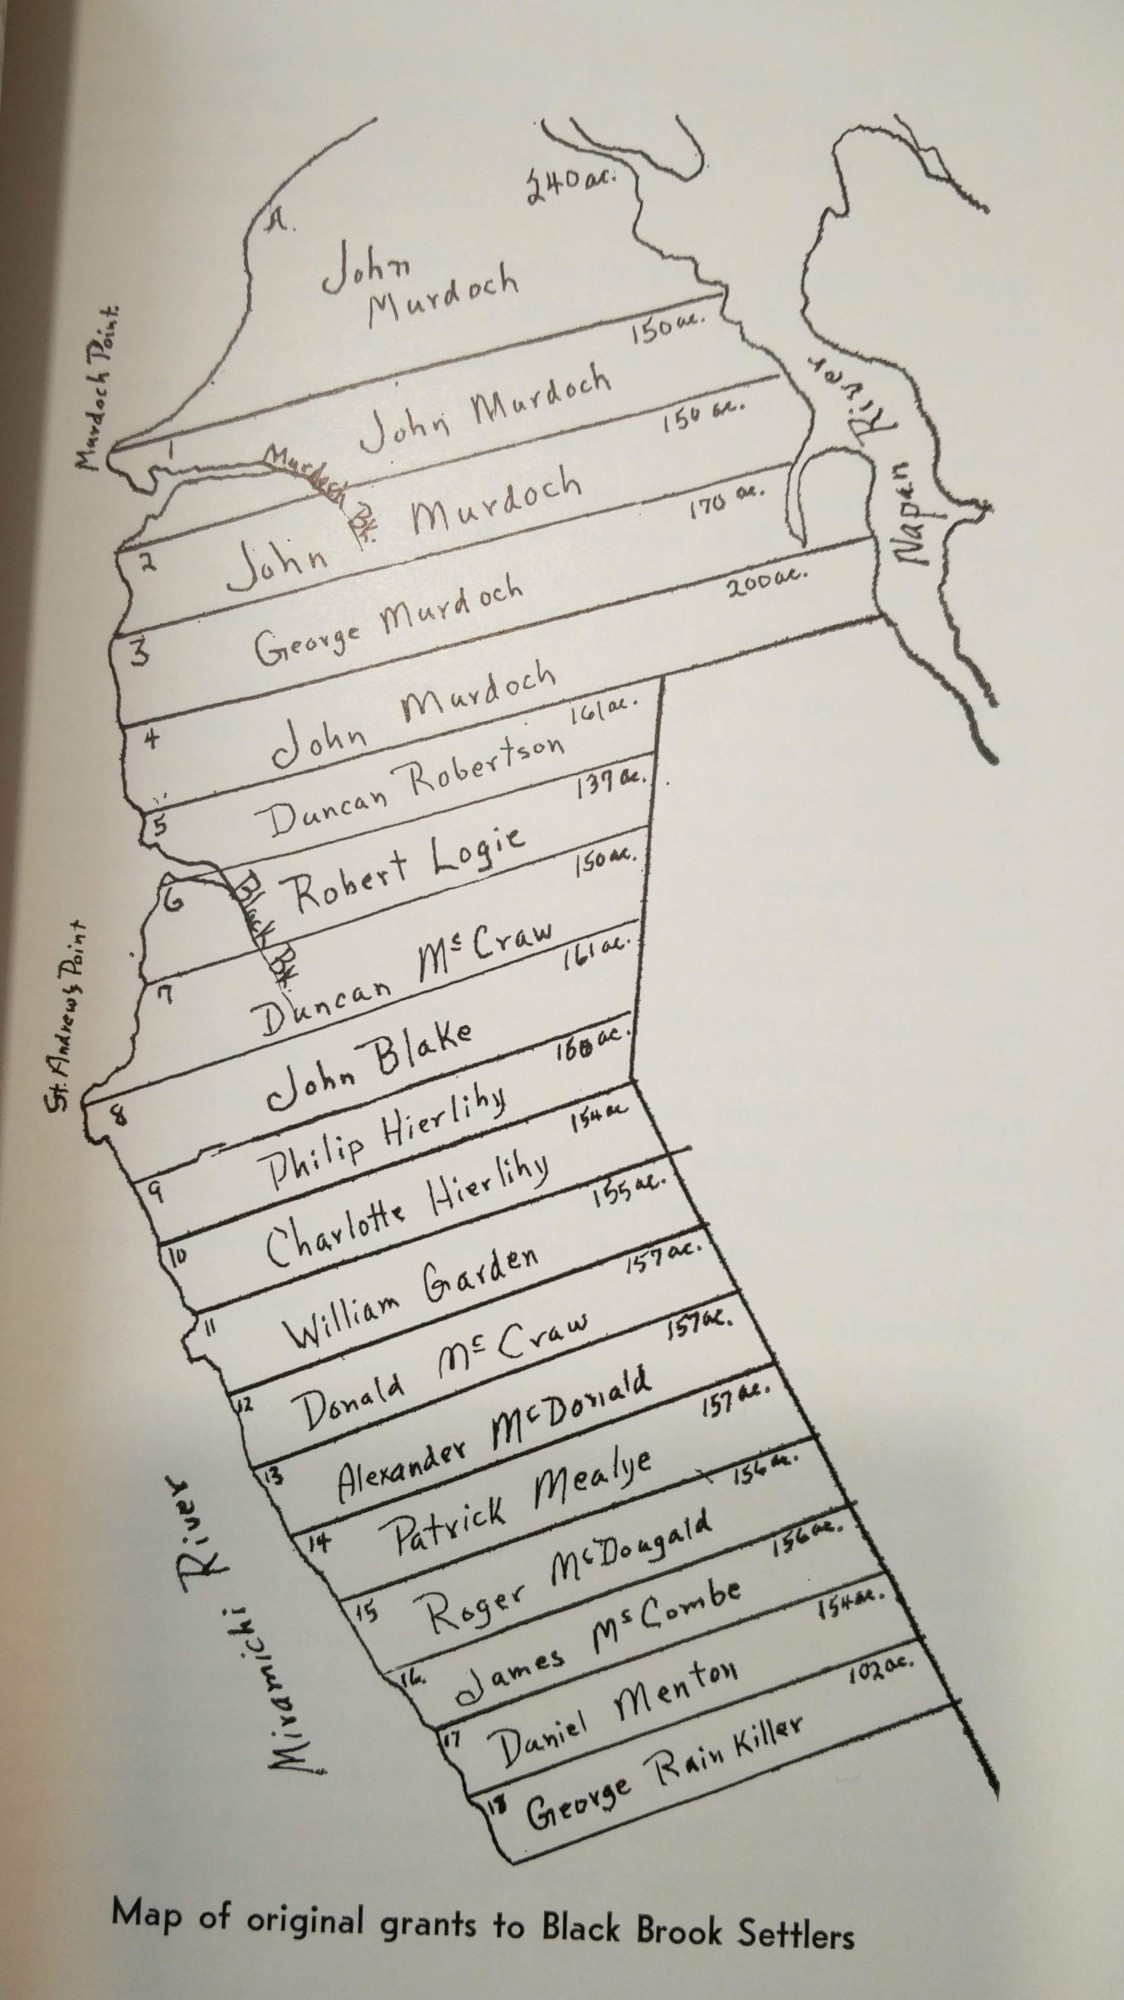 A.
240 ac.
John
Murdoch
Murdoch Point
1
John Murdoch
150 ac.
Murdoch Bk.
2
John Murdoch
150 ac.
3
George Murdoch
170 ac.
4
John Murdoch
200 ac.
River
Napan
5
Duncan Robertson
161 ac.
6
Robert Logie
137 ac.
Black Bk.
7
Duncan Mc Craw
150 ac.
St. Andrew's Point
8
John Blake
161 ac.
9
Philip Hierlihy
10
Charlotte Hierlihy
154 ac
11
William Garden
155 ac.
12
Donald Mc Craw
157 ac.
13
Alexander McDonald
157 ac.
14
Patrick Mealye
157 ac.
15
Roger McDougald
156 ac.
16.
James Mc Combe
156 ac.
17
Daniel Menton
154 ac.
18
George Rain Killer
102 ac.
Miramichi River
Map of original grants to Black Brook Settlers